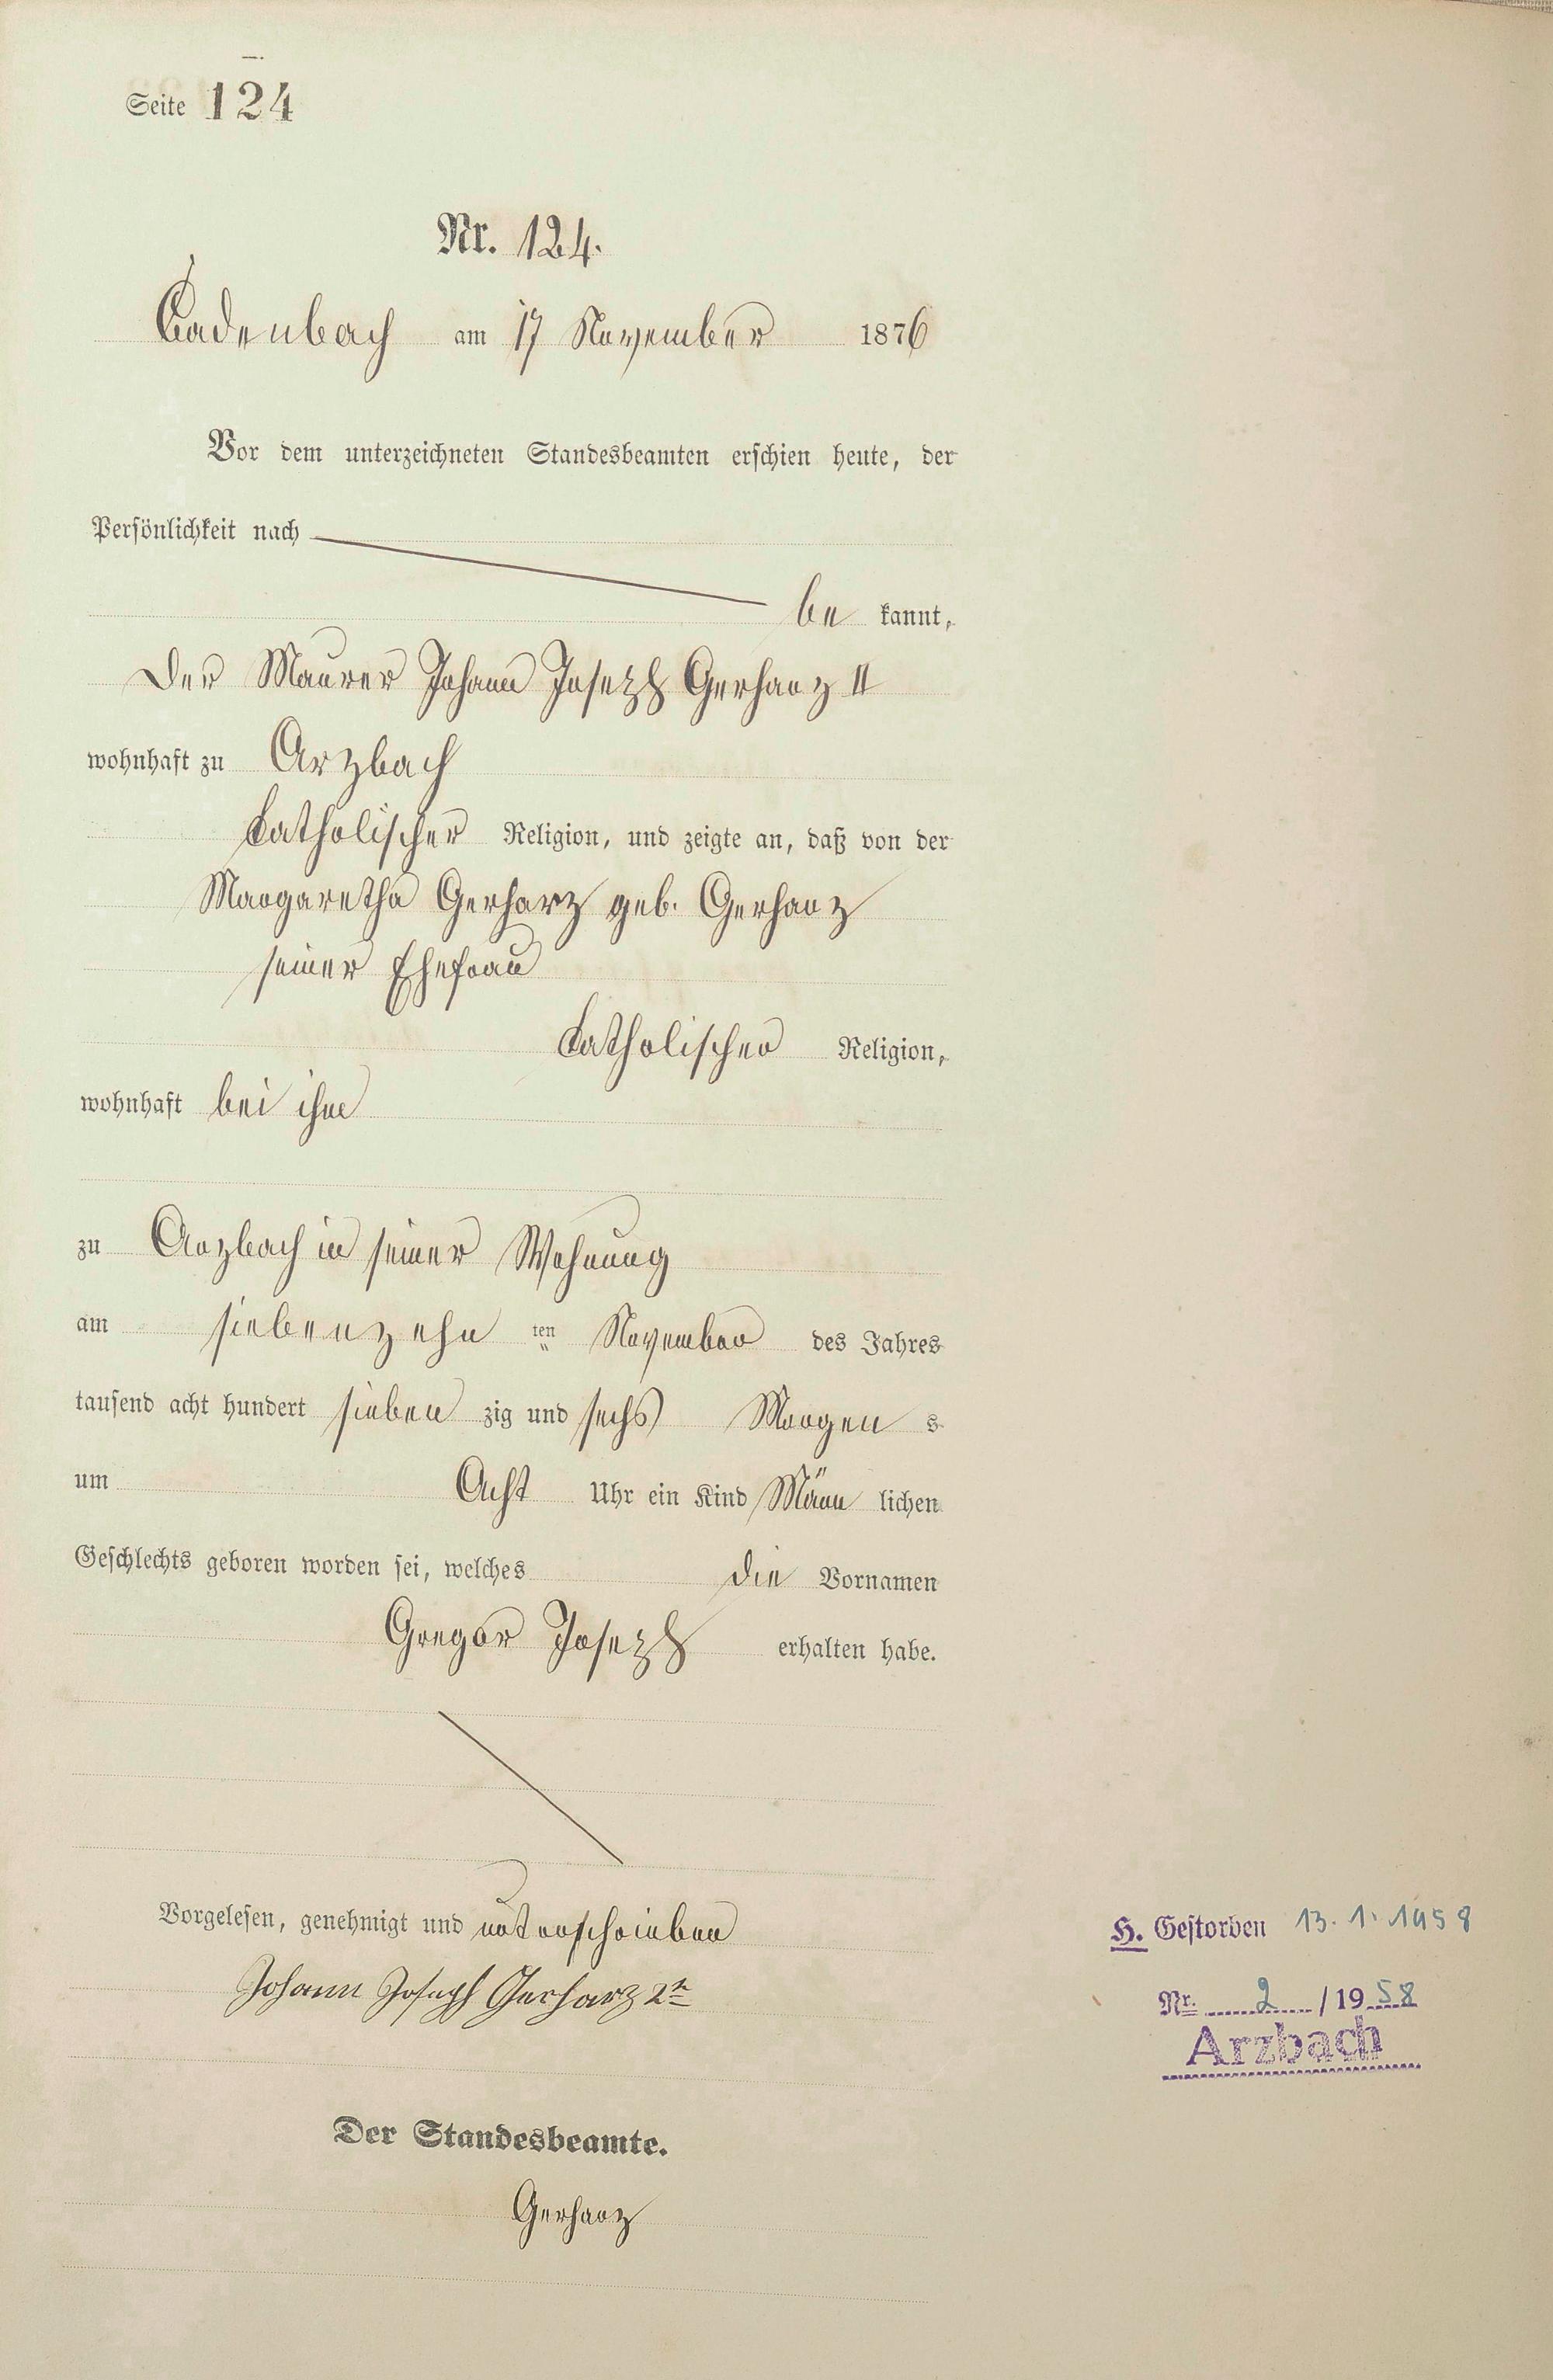 Seite 124
Nr. 124.
Cadenbach am 17 November 1876
Vor dem unterzeichneten Standesbeamten erschien heute, der
Persönlichkeit nach
be kannt,
der Maurer Johann Joseph Gerharz II
wohnhaft zu Arzbach
katholischer Religion, und zeigte an, daß von der
Margaretha Gerharz geb. Gerharz
seiner Ehefrau
katholischer Religion,
wohnhaft bei ihm
zu Arzbach in seiner Wohnung
am siebenzehn ten November des Jahres
tausend acht hundert sieben zig und sechs Morgen s
um Acht Uhr ein Kind Männ lichen
Geschlechts geboren worden sei, welches die Vornamen
Gregor Joseph erhalten habe.
Vorgelesen, genehmigt und unterschrieben
Johann Joseph Gerharz 2r
Der Standesbeamte.
Gerharz
H. Gestorben 13. 1. 1958
Nr. 2 / 19 58
Arzbach